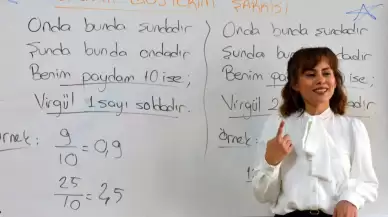 GÖSTERİM ŞARKISI
Onda bunda şundadır
Şunda bunda ondadır
Benim paydam 10 ise;
Virgül 1 sayı soldadır.
rnek:
9/10 = 0,9
25/10 = 2,5
Onda bunda şundadır
Şunda bunda
dadır
Benim pa
ise;
Virgül 2
dır.
Örnek: